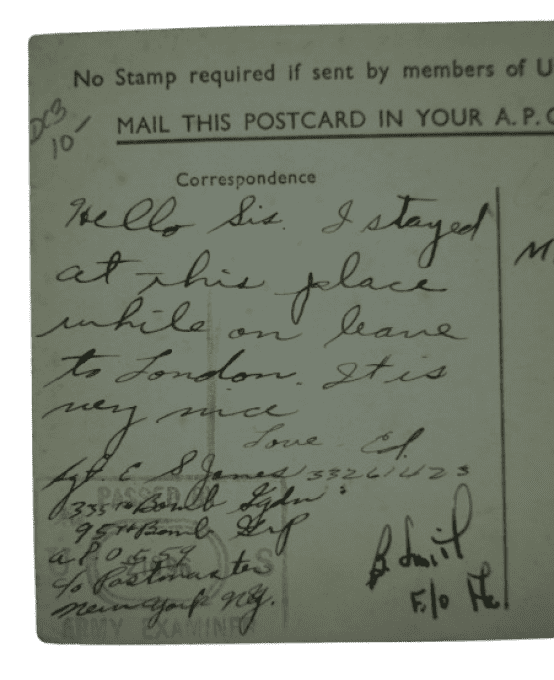 No Stamp required if sent by members of U
MAIL THIS POSTCARD IN YOUR A.P.O
DCB
10/
Correspondence
Hello Sis. I stayed
at this place
while on leave
to London. It is
very nice
Love Ed.
Sgt C S Jones 33261423
335th Bomb Sqdn
95th Bomb Grp
A.P.O 559
c/o Postmaster
New York N.Y.
PASSED BY
S
ARMY EXAMINER
F/O